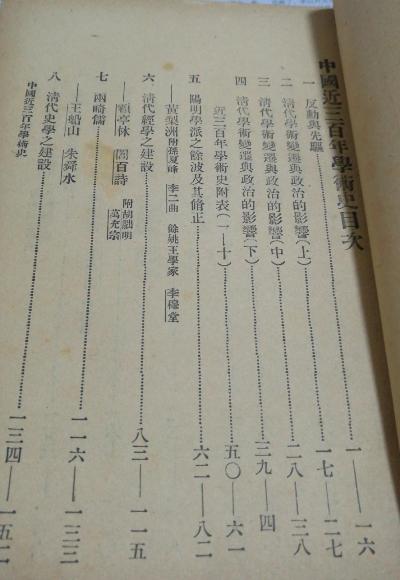 中國近三百年學術史目次
一 反動與先驅……一——一六
二 清代學術變遷與政治的影響（上）……一七——二七
三 清代學術變遷與政治的影響（中）……二八——三八
四 清代學術變遷與政治的影響（下）……三九——四
近三百年學術史附表（一——十）……五〇——六一
五 陽明學派之餘波及其脩正……六二——八二
——黃梨洲 附孫夏峰 李二曲 餘姚王學家 李穆堂
六 清代經學之建設……八三——一一五
——顧亭林 閻百詩 附胡朏明 萬充宗
七 兩畸儒……一一六——一三三
——王船山 朱舜水
八 清代史學之建設……一三四——一五二
中國近三百年學術史